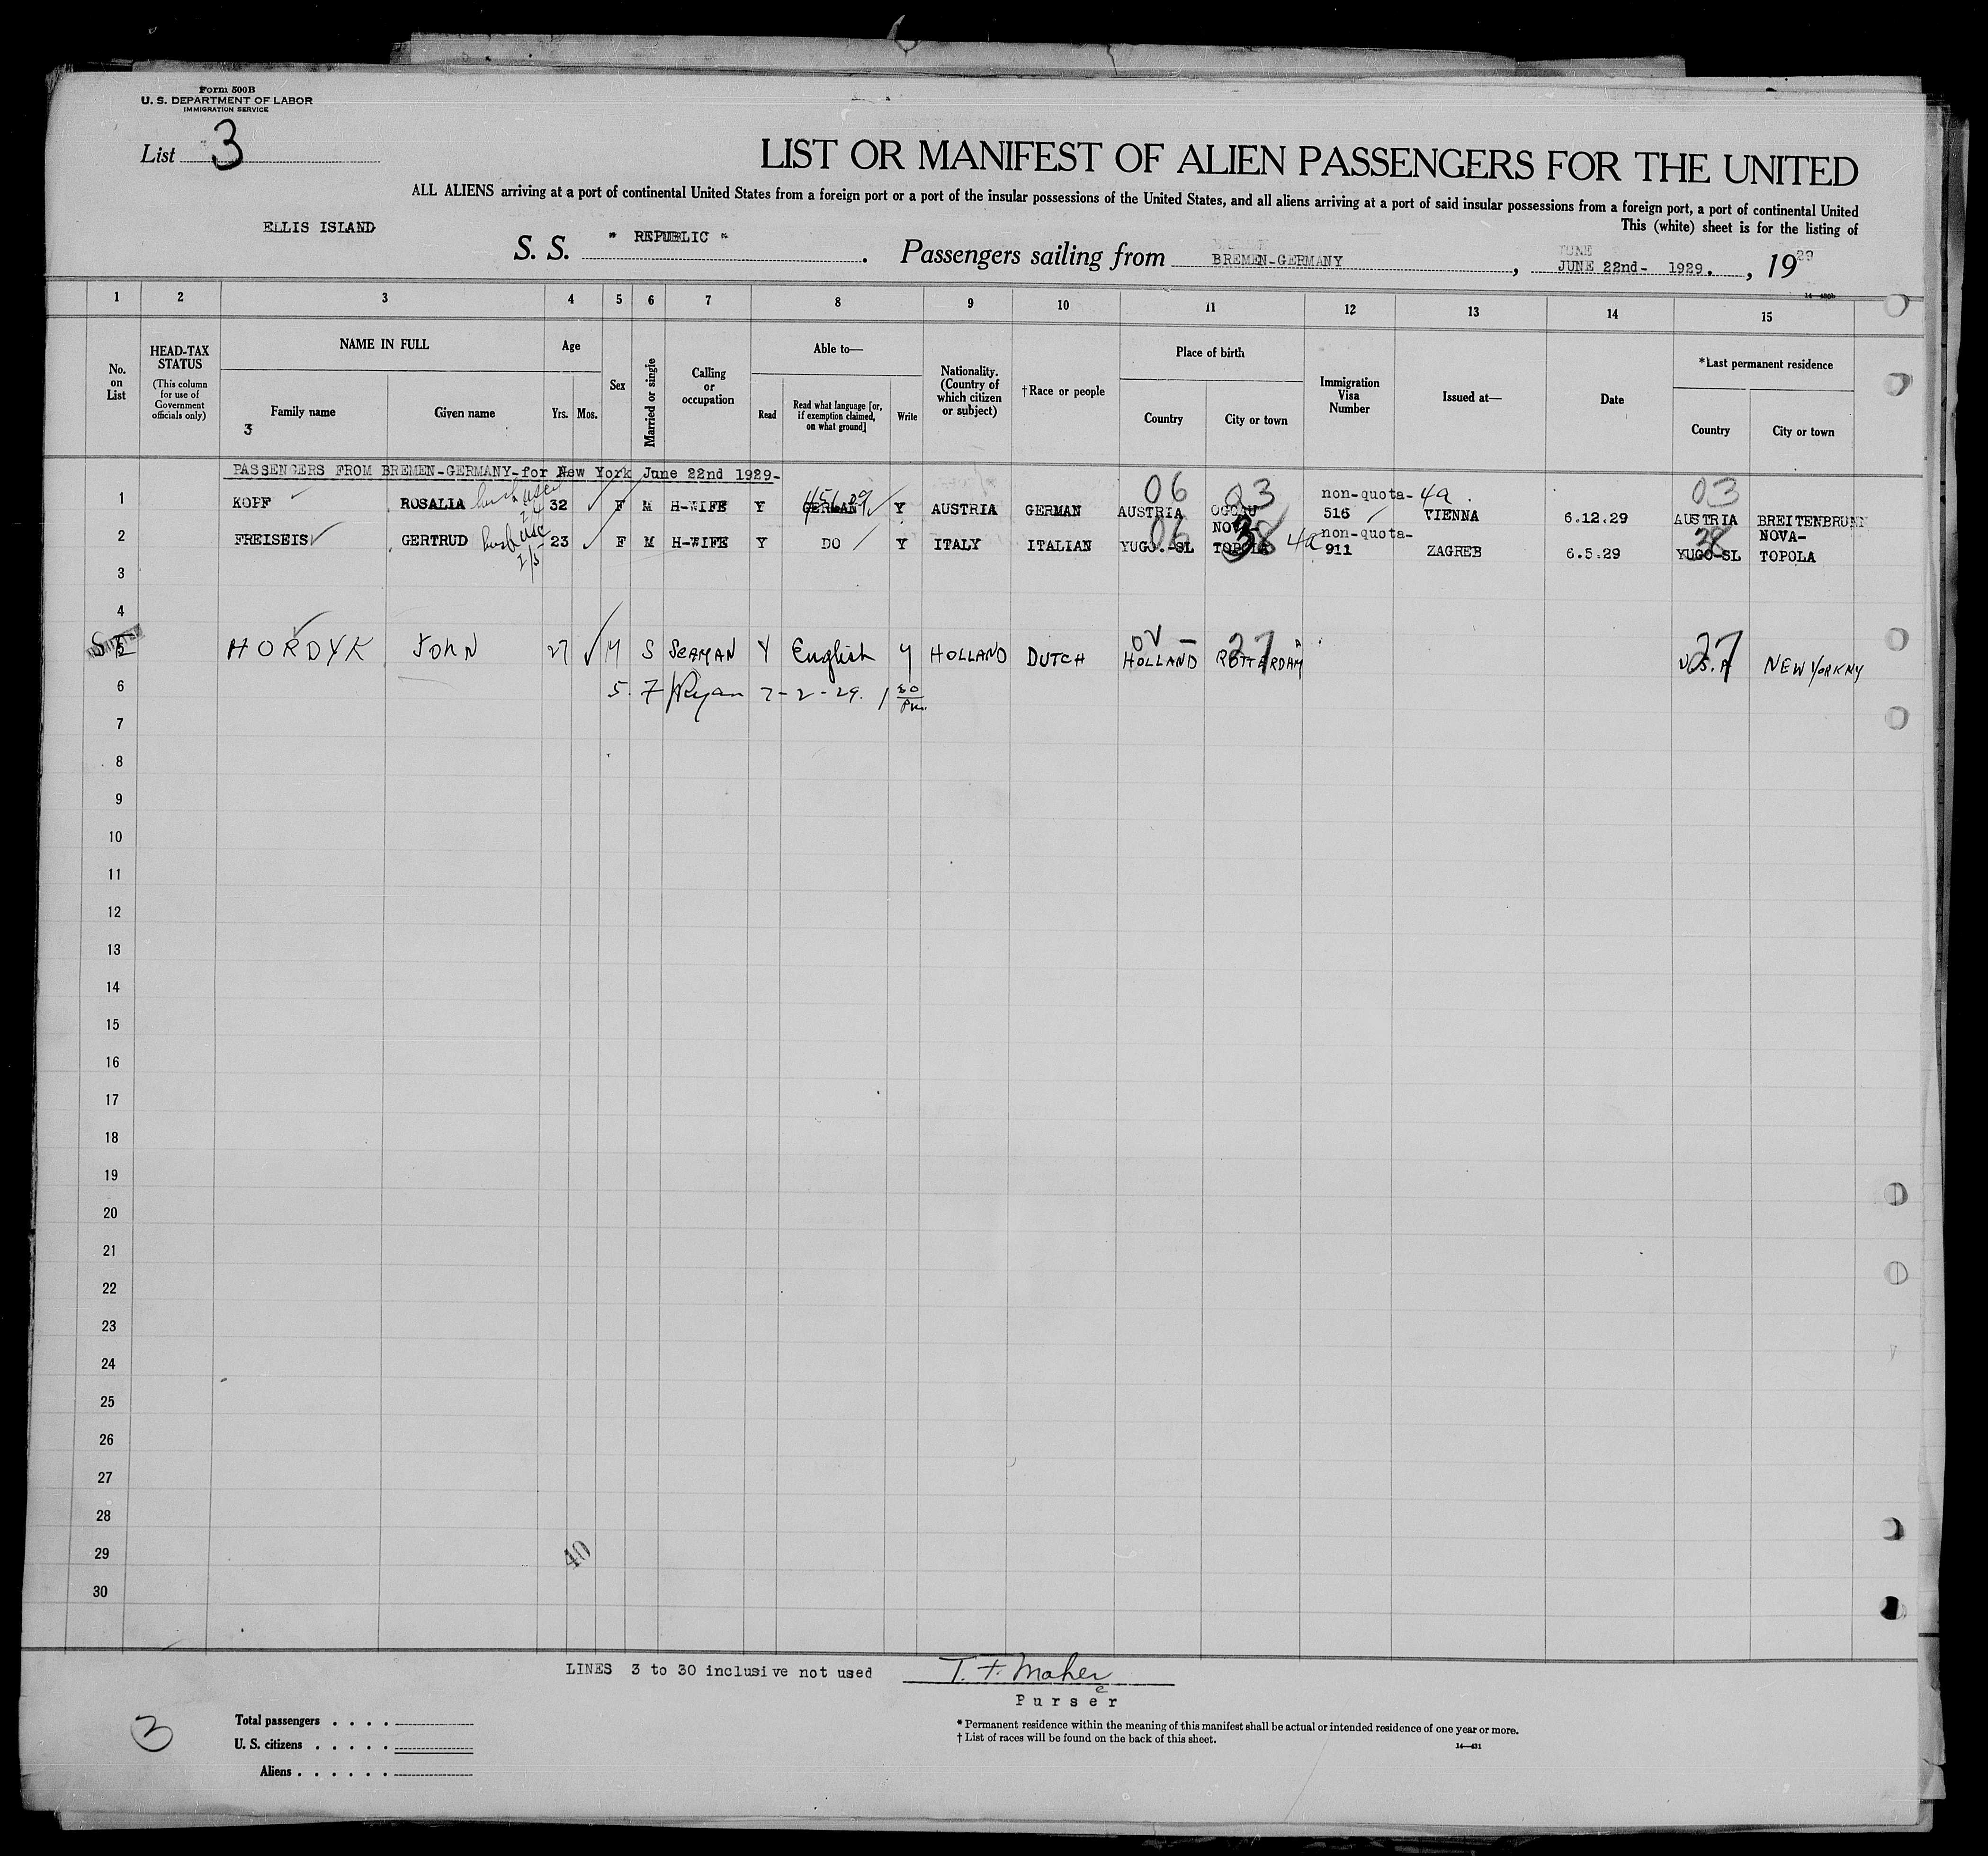 Form 500B
U. S. DEPARTMENT OF LABOR
IMMIGRATION SERVICE
List 3
LIST OR MANIFEST OF ALIEN PASSENGERS FOR THE UNITED
ALL ALIENS arriving at a port of continental United States from a foreign port or a port of the insular possessions of the United States, and all aliens arriving at a port of said insular possessions from a foreign port, a port of continental United
This (white) sheet is for the listing of
ELLIS ISLAND
S. S. " REPUBLIC " . Passengers sailing from BREMEN-GERMANY , JUNE 22nd- 1929. , 1929
1 2 3 4 5 6 7 8 9 10 11 12 13 14 15
No. on List
HEAD-TAX STATUS (This column for use of Government officials only)
NAME IN FULL
Family name Given name
3
Age Yrs. Mos.
Sex
Married or single
Calling or occupation
Able to—
Read Read what language [or, if exemption claimed, on what ground] Write
Nationality. (Country of which citizen or subject)
†Race or people
Place of birth
Country City or town
Immigration Visa Number
Issued at—
Date
*Last permanent residence
Country City or town
PASSENGERS FROM BREMEN-GERMANY-for New York June 22nd 1929-
1 KOPF ROSALIA 32 F M H-WIFE Y GERMAN Y AUSTRIA GERMAN 06 AUSTRIA 03 non-quota- 4a 516 VIENNA 6.12.29 03 AUSTRIA BREITENBRUNN
2 FREISEIS GERTRUD 23 F M H-WIFE Y DO Y ITALY ITALIAN 06 YUGO.-SL NOVA- TOPOLA 38 4a non-quota- 911 ZAGREB 6.5.29 38 YUGO-SL NOVA- TOPOLA
3
4
5 HORDYK JOHN 27 M S SEAMAN Y English Y HOLLAND DUTCH HOLLAND 27 ROTTERDAM 27 U.S.A NEW YORK NY
6 Ryan 7-2-29. 1 30 PM.
7
8
9
10
11
12
13
14
15
16
17
18
19
20
21
22
23
24
25
26
27
28
29
30
40
LINES 3 to 30 inclusive not used T. F. Maher
Purser
3
Total passengers
U. S. citizens
Aliens
* Permanent residence within the meaning of this manifest shall be actual or intended residence of one year or more.
† List of races will be found on the back of this sheet.
14—431